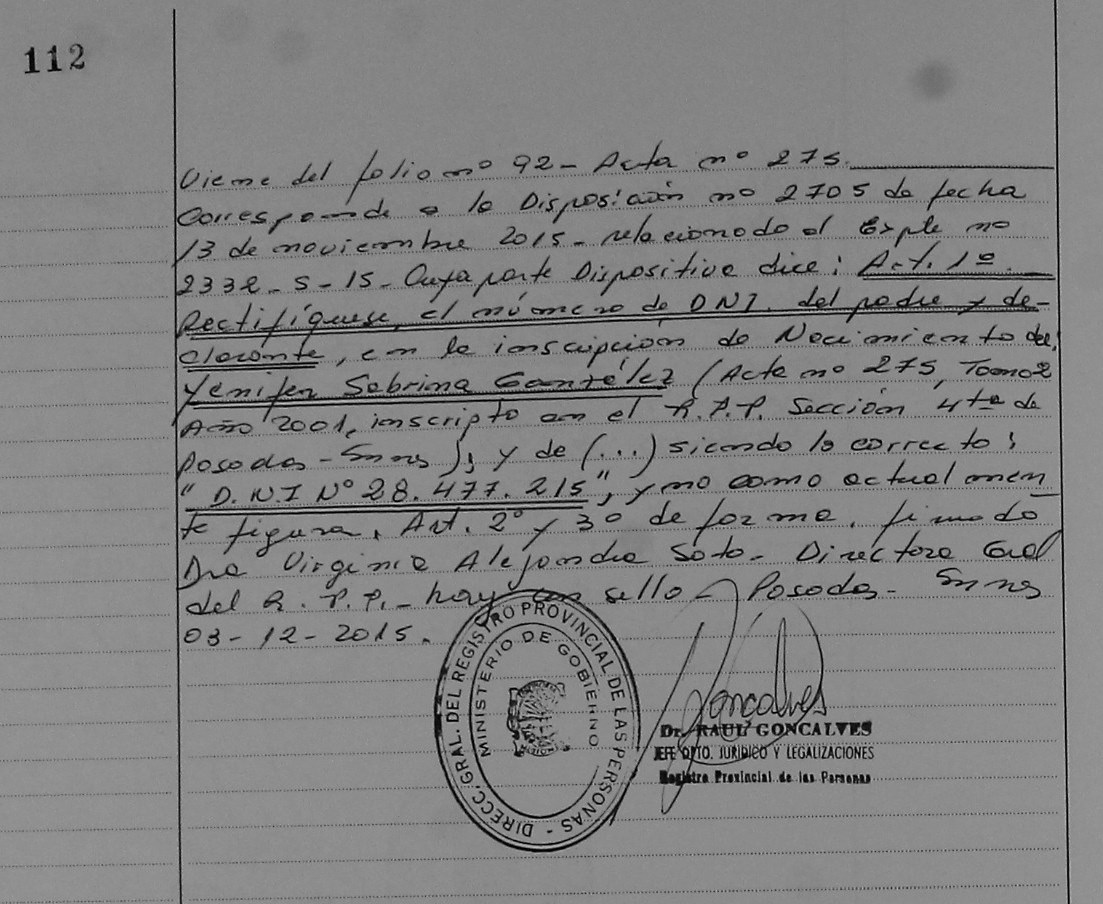 112
Viene del folio nº 92 - Acta nº 275.
Corresponde a la Disposición nº 2705 de fecha
13 de noviembre 2015 - relacionado al Expte nº
2332 - S - 15 - Cuya parte Dispositiva dice: Art. 1º
Rectifíquese, el número de DNI. del padre y de-
clarante, en la inscripción de Nacimiento de:
Yenifer Sabrina (Acta nº 275, Tomo 2
Año 2001, inscripto en el R.P.P. Sección 4ta de
Posadas - ); y de (...) siendo lo correcto:
"D.N.I Nº 28.477.215", y no como actualmen
te figura. Art. 2º y 3º de forma. firmado
Dra Virginia Alejandra Soto - Directora Gral
del R. P. P. - hay un sello - Posadas -
03 - 12 - 2015.
DIRECC. GRAL. DEL REGISTRO PROVINCIAL DE LAS PERSONAS -
MINISTERIO DE GOBIERNO
Goncalves
Dr. RAUL GONCALVES
JEFE DPTO. JURIDICO Y LEGALIZACIONES
Registro Provincial de las Personas